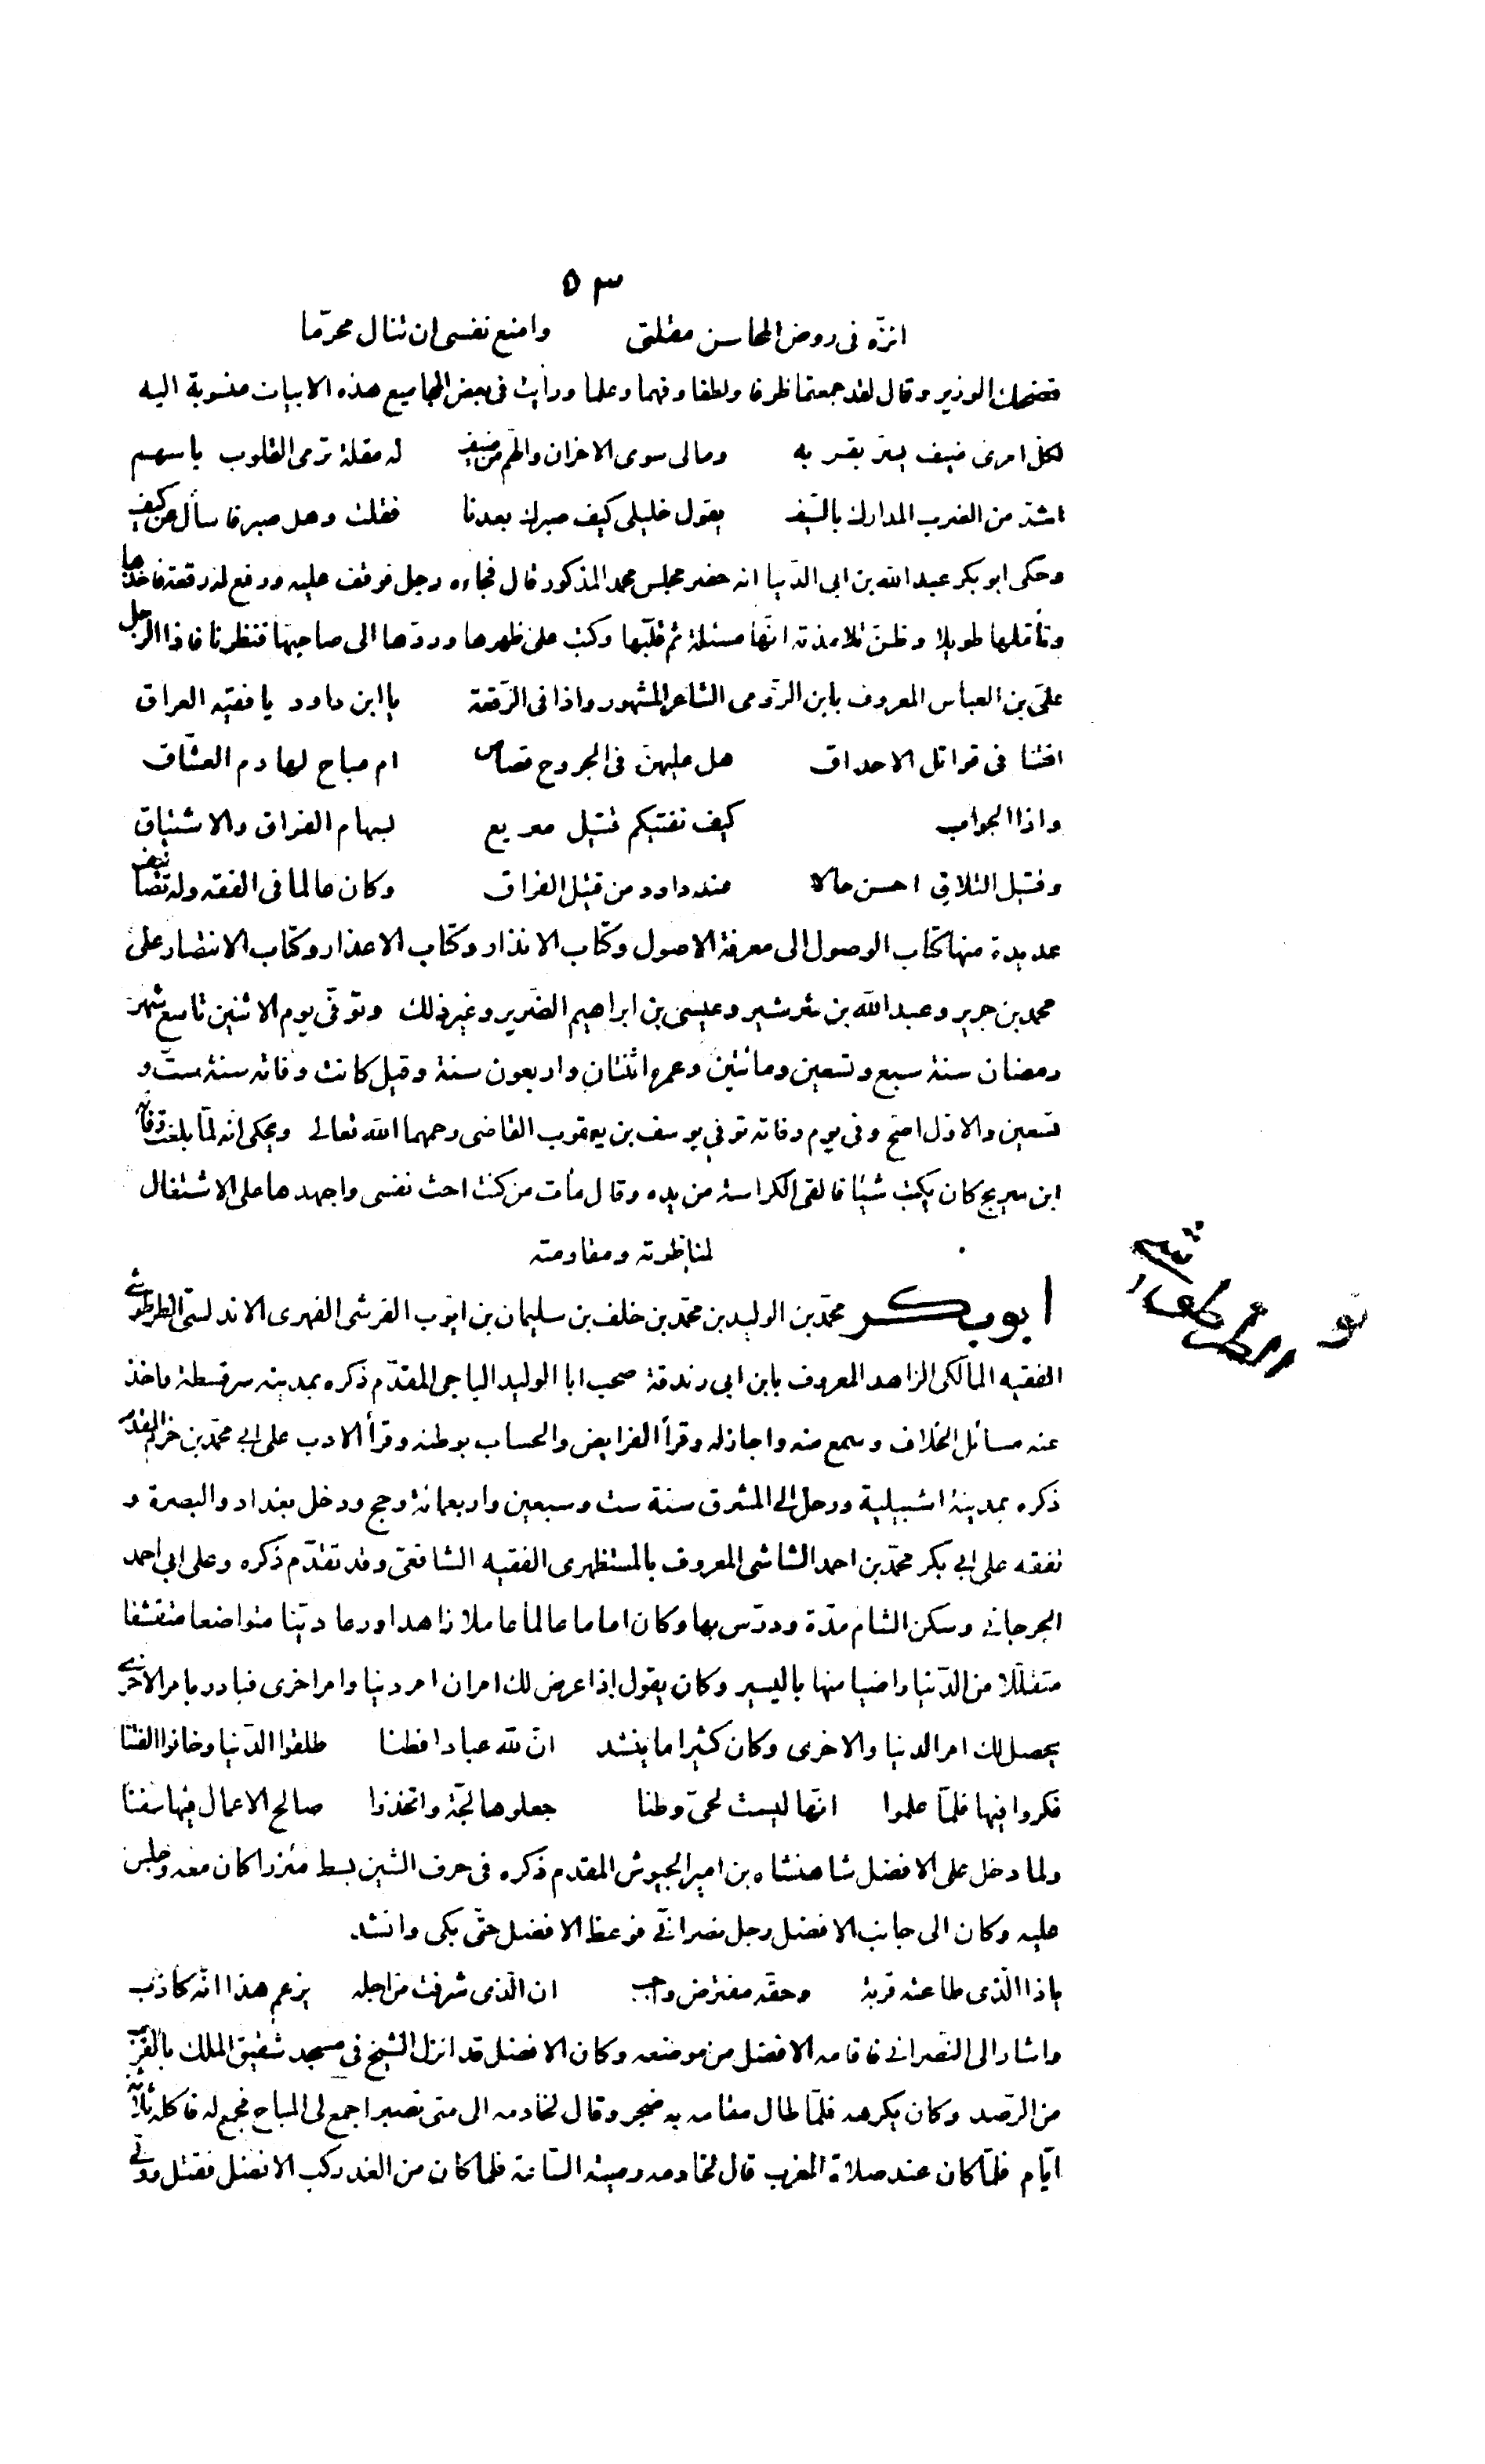 ٥٣
انزّه فى روض المحاسن مقلتى وامنع نفسى ان تنال محرّما
فضحك الوزير وقال لقد جمعتما ظرفا ولطفا وفهما وعلما ورأيت فى بعض المجاميع هذه الابيات منسوبة اليه
لكل امرئ ضيف يسرّ بقربه ومالى سوى الاحزان والهم من ضيف له مقلة ترمى القلوب باسهم
اشدّ من الضرب المدارك بالسّيف يقول خليلى كيف صبرك بعدنا فقلت وهل صبر فاسأل عن كيف
وحكى ابو بكر عبد الله بن ابى الدّنيا انه حضر مجلس محمد المذكور قال فجاءه رجل فوقف عليه ودفع له رقعة فاخذها
وتأمّلها طويلا وظنّ تلامذته انّها مسئلة ثم قلّبها وكتب على ظهرها وردّها الى صاحبها فنظرنا فاذا الرجل
علىّ بن العباس المعروف بابن الرّومى الشاعر المشهور واذا فى الرّقعة يا ابن داود يا فقيه العراق
افتنا فى قواتل الاحداق هل عليهنّ فى الجروح قصاص ام مباح لها دم العشّاق
واذا الجواب كيف نفتيكم قتيل صريع بسهام الفراق والاشتياق
وقتيل التلاقى احسن حالا عند داود من قتيل الفراق وكان عالما فى الفقه وله تصانيف
عديدة منها كتاب الوصول الى معرفة الاصول وكتاب الانذار وكتاب الاعذار وكتاب الانتصار على
محمد بن جرير وعبد الله بن شرشير وعيسى بن ابراهيم الضّرير وغير ذلك وتوفّى يوم الاثنين تاسع شهر
رمضان سنة سبع وتسعين ومائتين وعمره اثنتان واربعون سنة وقيل كانت وفاته سنة ستّ و
تسعين والاوّل اصحّ وفى يوم وفاته توفى يوسف بن يعقوب القاضى رحمهما الله تعالى ويحكى انّه لمّا بلغت وفاته
ابن سريج كان يكتب شيئا فالقى الكراسة من يده وقال مات من كنت احث نفسى واجهدها على الاشتغال
لمناظرته ومقاومته
ابو بكر محمّد بن الوليد بن محمّد بن خلف بن سليمان بن ايّوب القرشى الفهرى الاندلسىّ الطرطوشى
الفقيه المالكى الزاهد المعروف بابن ابى رندقة صحب ابا الوليد الباجى المقدّم ذكره بمدينه سرقسطة واخذ
عنه مسائل الخلاف وسمع منه واجاز له وقرأ الفرايض والحساب بوطنه وقرأ الادب على ابى محمّد بن حزم المقدّم
ذكره بمدينة اشبيلية ورحل الى المشرق سنة ست وسبعين واربعمائة وحج ودخل بغداد والبصرة و
تفقه على ابى بكر محمّد بن احمد الشاشى المعروف بالمستظهرى الفقيه الشافعىّ وقد تقدّم ذكره وعلى ابى احمد
الجرجانى وسكن الشام مدّة ودرّس بها وكان اماما عالما عاملا زاهدا ورعا ديّنا متواضعا متقشفا
متقلّلا من الدّنيا راضيا منها باليسير وكان يقول اذا عرض لك امران امر دنيا وامر اخرى فبادر بامر الاخرى
يحصل لك امر الدنيا والاخرى وكان كثيرا ما ينشد انّ لله عبادا فطنا طلقوا الدّنيا وخافوا الفتنا
فكروا فيها فلمّا علموا انّها ليست لحىّ وطنا جعلوها لجّة واتخذوا صالح الاعمال فيها سفنا
ولما دخل على الافضل شاهنشاه بن امير الجيوش المقدم ذكره فى حرف الشين بسط مئزرا كان معه وجلس
عليه وكان الى جانب الافضل رجل نصرانىّ فوعظ الافضل حتّى بكى وانشد
ياذا الّذى طاعته قربة وحقّه مفترض واجب ان الّذى شرفت من اجله يزعم هذا انّه كاذب
واشار الى النّصرانى فاقامه الافضل من موضعه وكان الافضل قد انزل الشيخ فى مسجد شقيق الملك بالقرب
من الرّصد وكان يكرهه فلمّا طال مقامه به ضجر وقال لخادمه الى متى نصبر اجمع لى المباح فجمع له فاكله ثلاثة
ايّام فلمّا كان عند صلاة المغرب قال لخادمه رميته السّاعة فلما كان من الغد ركب الافضل فقتل وولّى
الطرطوشى